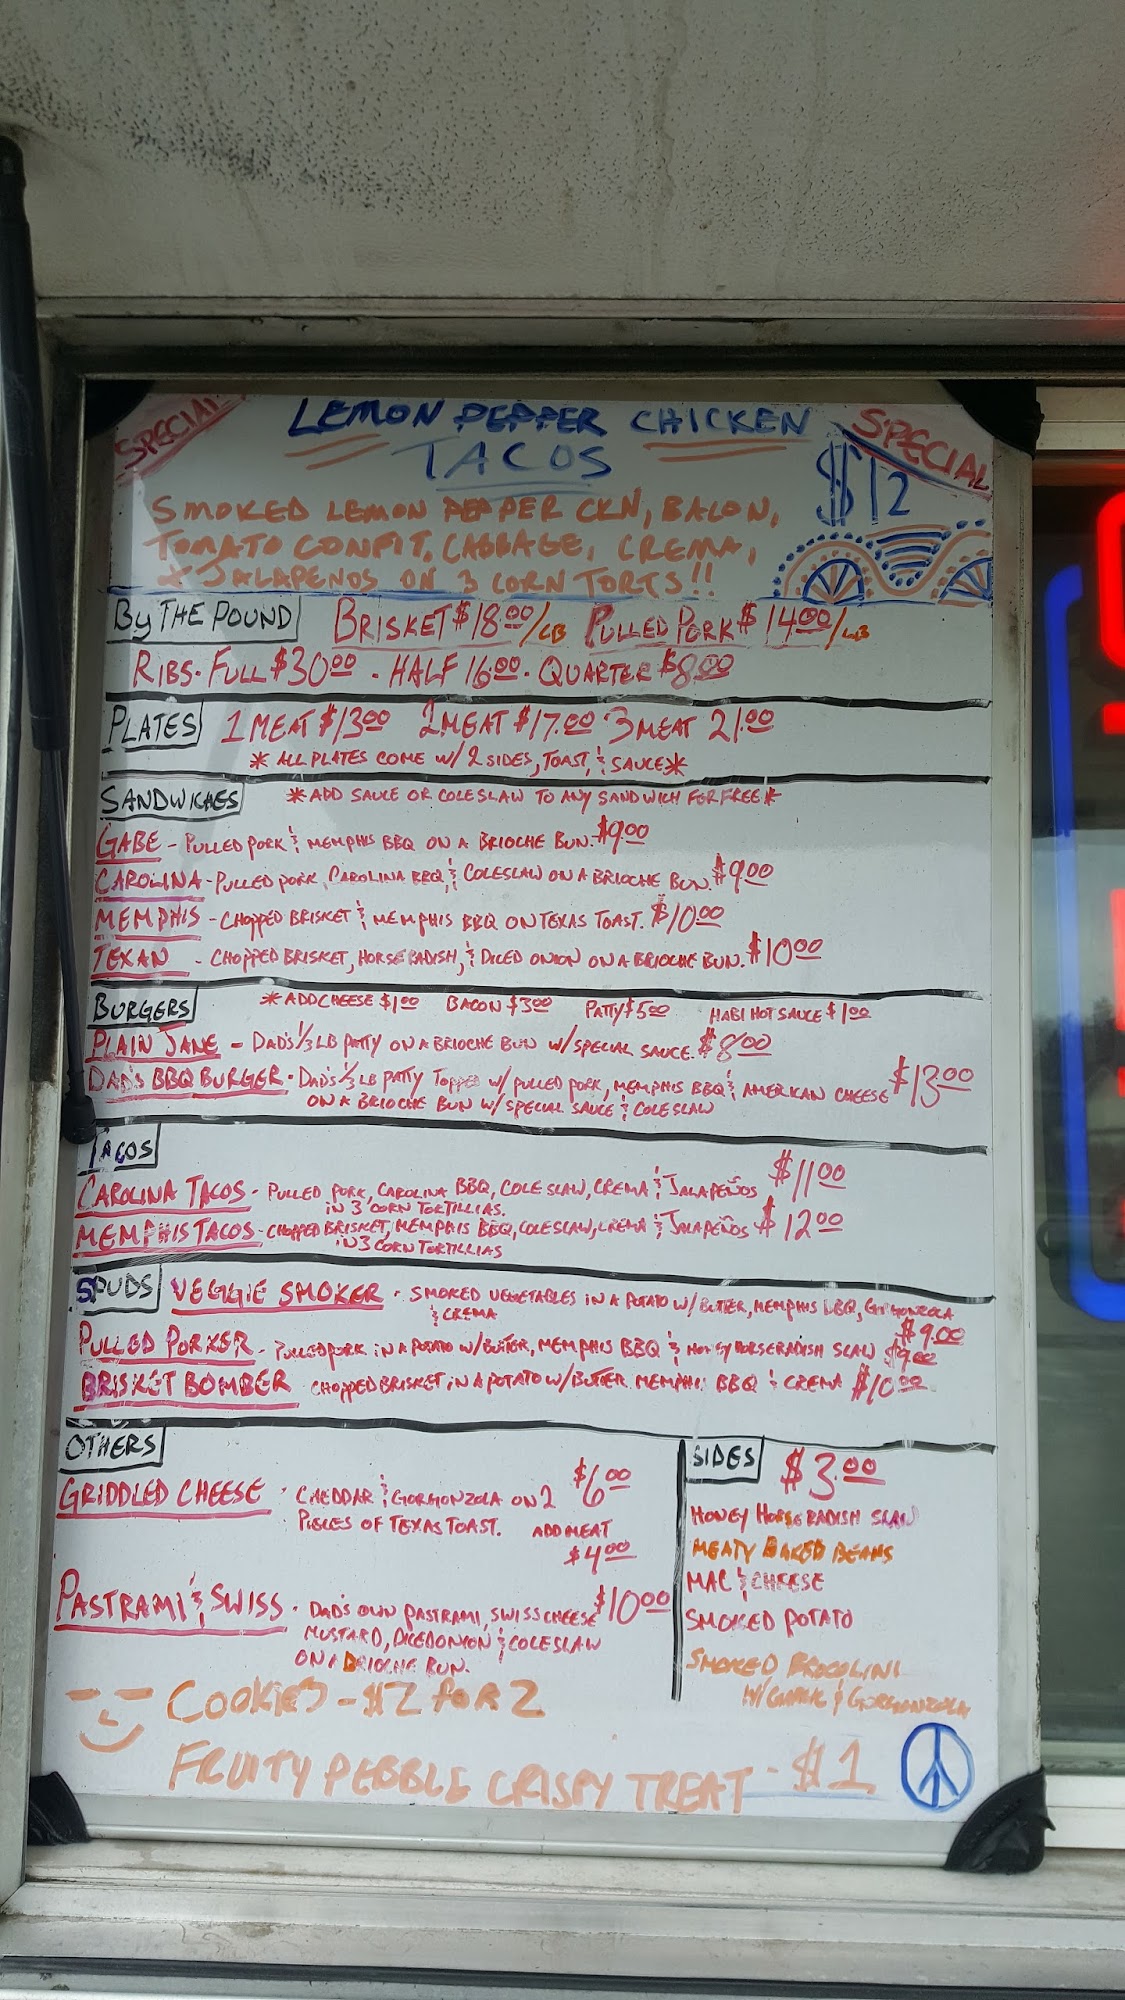 SPECIAL
LEMON PEPPER CHICKEN
SPECIAL
TACOS
$12
SMOKED LEMON PEPPER CKN, BACON,
TOMATO CONFIT, CABBAGE, CREMA,
& JALAPENOS ON 3 CORN TORTS!!
BY THE POUND BRISKET $18.00/LB PULLED PORK $14.00/LB
RIBS · FULL $30.00 · HALF 16.00 · QUARTER $8.00
PLATES 1 MEAT $13.00 2 MEAT $17.00 · 3 MEAT 21.00
* ALL PLATES COME W/ 2 SIDES, TOAST, & SAUCE *
SANDWICHES * ADD SAUCE OR COLESLAW TO ANY SANDWICH FOR FREE *
GABE - PULLED PORK & MEMPHIS BBQ ON A BRIOCHE BUN. $9.00
CAROLINA - PULLED PORK, CAROLINA BBQ, & COLESLAW ON A BRIOCHE BUN. $9.00
MEMPHIS - CHOPPED BRISKET & MEMPHIS BBQ ON TEXAS TOAST. $10.00
TEXAN - CHOPPED BRISKET, HORSERADISH, & DICED ONION ON A BRIOCHE BUN. $10.00
BURGERS * ADD CHEESE $1.00 BACON $3.00 PATTY $5.00 HABI HOT SAUCE $1.00
PLAIN JANE - DAD'S 1/3 LB PATTY ON A BRIOCHE BUN W/ SPECIAL SAUCE. $8.00
DAD'S BBQ BURGER · DAD'S 1/3 LB PATTY TOPPED W/ PULLED PORK, MEMPHIS BBQ & AMERICAN CHEESE $13.00
ON A BRIOCHE BUN W/ SPECIAL SAUCE & COLESLAW
TACOS
CAROLINA TACOS - PULLED PORK, CAROLINA BBQ, COLESLAW, CREMA & JALAPEÑOS $11.00
IN 3 CORN TORTILLIAS.
MEMPHIS TACOS - CHOPPED BRISKET, MEMPHIS BBQ, COLESLAW, CREMA & JALAPEÑOS $12.00
IN 3 CORN TORTILLIAS
SPUDS VEGGIE SMOKER · SMOKED VEGETABLES IN A POTATO W/ BUTTER, MEMPHIS BBQ, GORGONZOLA
& CREMA $9.00
PULLED PORKER - PULLED PORK IN A POTATO W/ BUTTER, MEMPHIS BBQ & HONEY HORSERADISH SLAW $9.00
BRISKET BOMBER CHOPPED BRISKET IN A POTATO W/ BUTTER. MEMPHIS BBQ & CREMA $10.00
OTHERS
GRIDDLED CHEESE · CHEDDAR & GORGONZOLA ON 2 $6.00
PIECES OF TEXAS TOAST. ADD MEAT
$4.00
PASTRAMI & SWISS · DAD'S OWN PASTRAMI, SWISS CHEESE $10.00
MUSTARD, DICED ONION & COLESLAW
ON A BRIOCHE BUN.
SIDES $3.00
HONEY HORSERADISH SLAW
MEATY BAKED BEANS
MAC & CHEESE
SMOKED POTATO
SMOKED BROCOLINI
W/ GARLIC & GORGONZOLA
COOKIES - $2 for 2
FRUITY PEBBLE CRISPY TREAT - $1